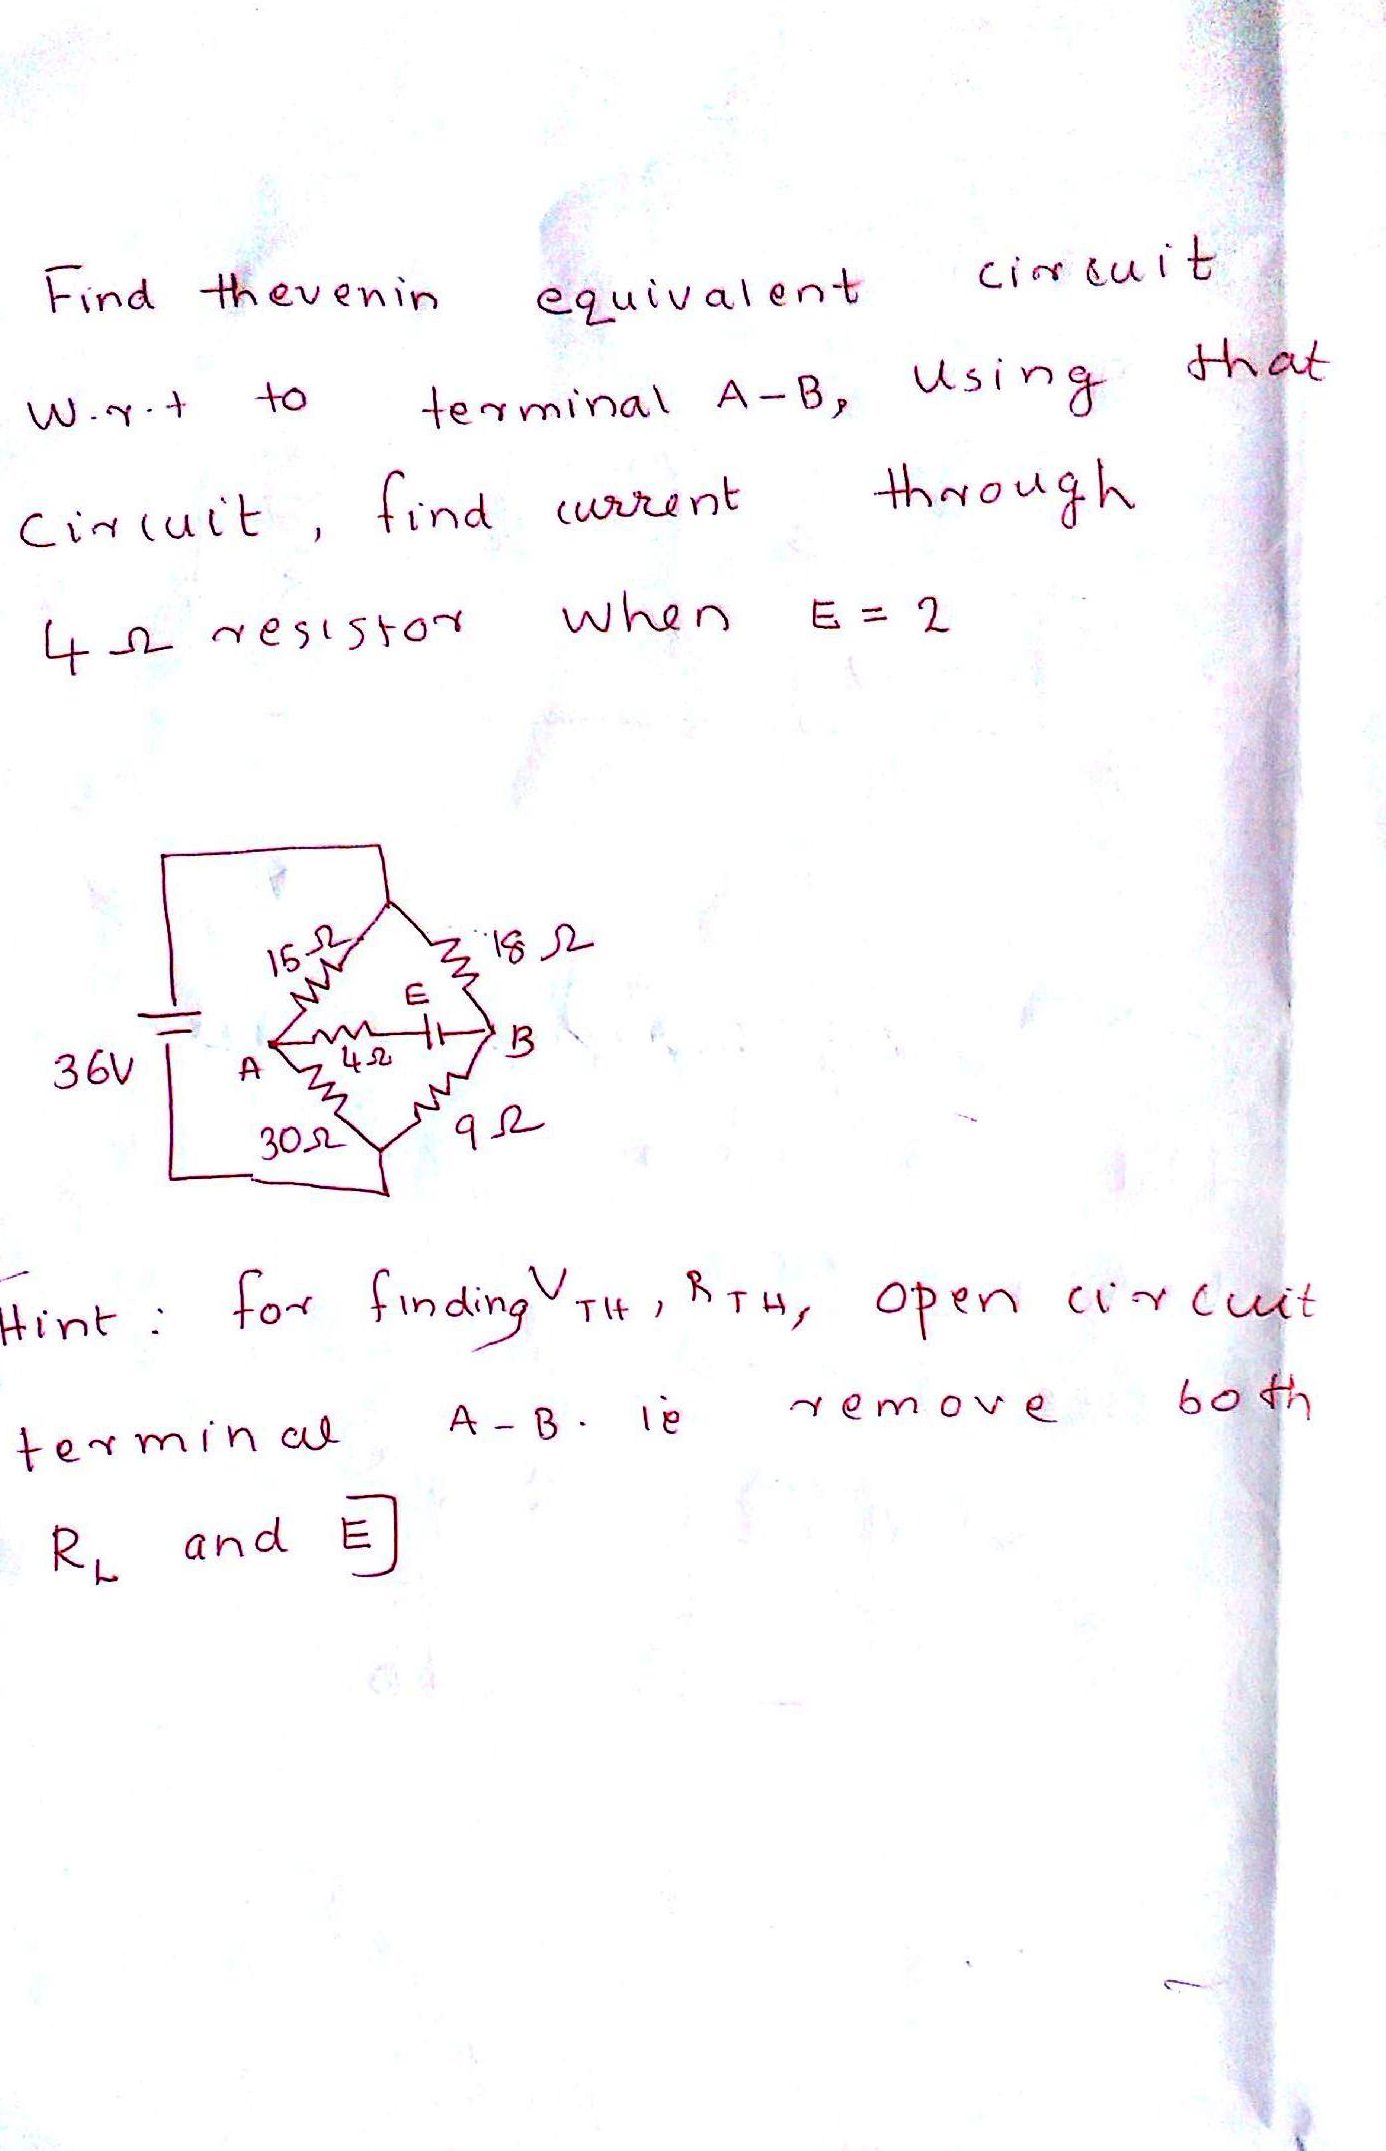 Find thevenin equivalent circuit
w.r.t to terminal A-B, Using that
circuit, find current through
4Ω resistor when E = 2
15Ω
18Ω
E
36V
A
4Ω
B
30Ω
9Ω
Hint: for finding VTH, RTH, open circuit
terminal A-B. ie remove both
RL and E]